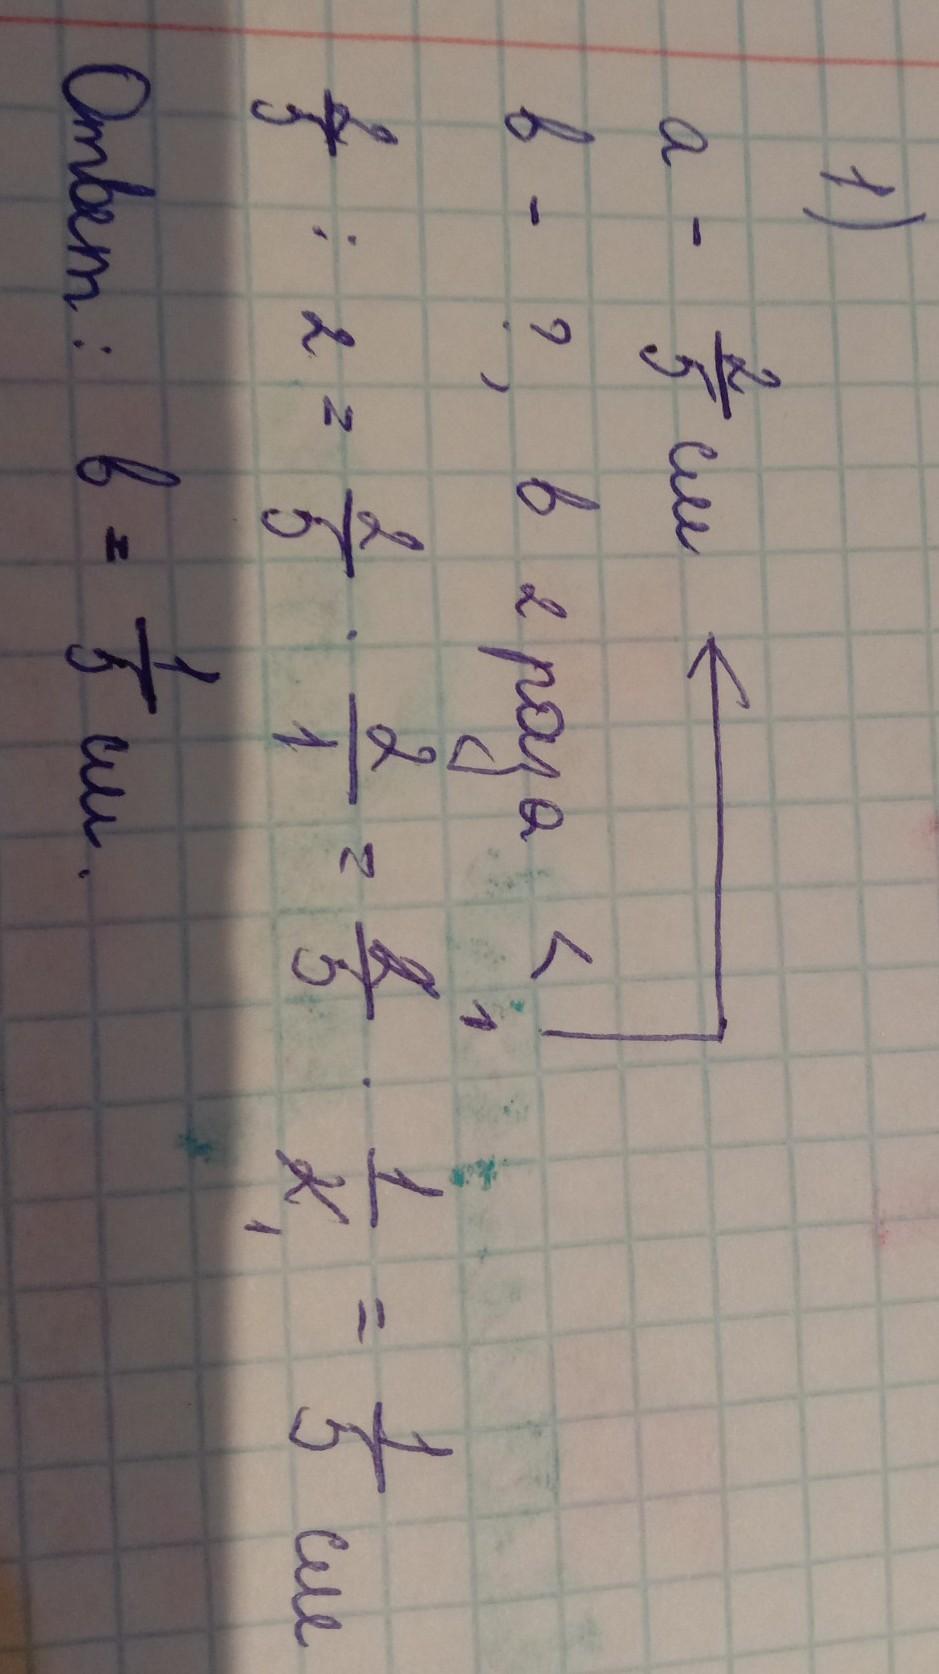 1)
a - 2/5 см
b - ?, в 2 раза <
2/5 : 2 = 2/5 · 2/1 = 2/5 · 1/2 = 1/5 см
1
1
Ответ: b = 1/5 см.